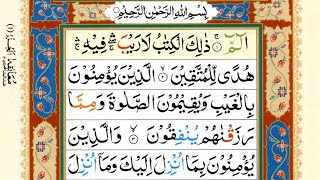 بِسْمِ اللّٰهِ الرَّحْمٰنِ الرَّحِيْمِ
الٓمّٓ ۚ﴿۱﴾ ذٰلِكَ الْكِتٰبُ لَا رَيْبَ ۛۚ فِيْهِ ۛۚ
هُدًى لِّلْمُتَّقِيْنَ ۙ﴿۲﴾ الَّذِيْنَ يُؤْمِنُوْنَ
بِالْغَيْبِ وَيُقِيْمُوْنَ الصَّلٰوةَ وَمِمَّا
رَزَقْنٰهُمْ يُنْفِقُوْنَ ۙ﴿۳﴾ وَالَّذِيْنَ
يُؤْمِنُوْنَ بِمَآ اُنْزِلَ اِلَيْكَ وَمَآ اُنْزِلَ